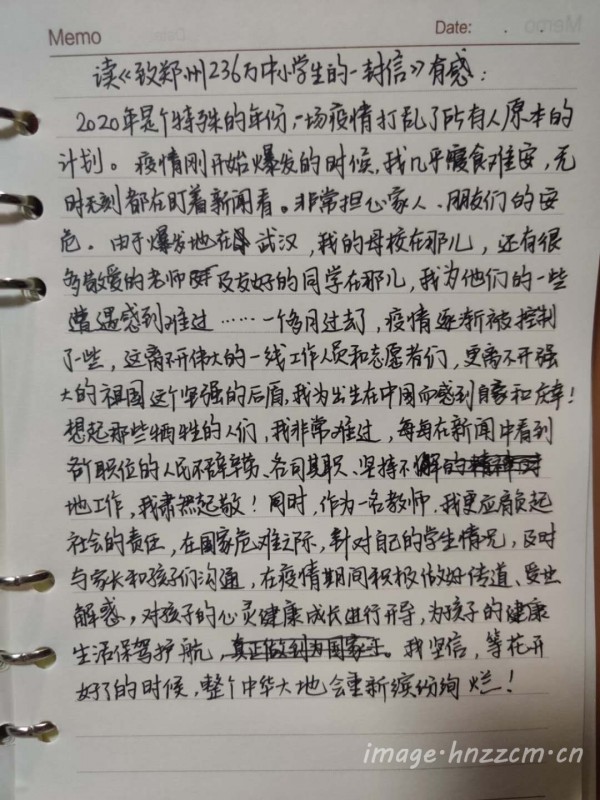 Memo Date: . .
读《致郑州236万中小学生的一封信》有感:
2020年是个特殊的年份,一场疫情打乱了所有人原本的
计划。疫情刚开始爆发的时候,我几乎寝食难安,无
时无刻都在盯着新闻看。非常担心家人、朋友们的安
危。由于爆发地在武汉,我的母校在那儿,还有很
多敬爱的老师及友好的同学在那儿,我为他们的一些
遭遇感到难过……一个多月过去了,疫情逐渐被控制
了一些,这离不开伟大的一线工作人员和志愿者们,更离不开强
大的祖国这个坚强的后盾,我为出生在中国而感到自豪和庆幸!
想起那些牺牲的人们,我非常难过,每每在新闻中看到
各个职位的人民不辞辛劳、各司其职、坚持不懈的
地工作,我肃然起敬!同时,作为一名教师,我更应肩负起
社会的责任,在国家危难之际,针对自己的学生情况,及时
与家长和孩子们沟通,在疫情期间积极做好传道、受业
解惑,对孩子的心灵健康成长进行开导,为孩子的健康
生活保驾护航,真正做到为国家。我坚信,等花开
好了的时候,整个中华大地会重新缤纷绚烂!
image·hnzzcm·cn